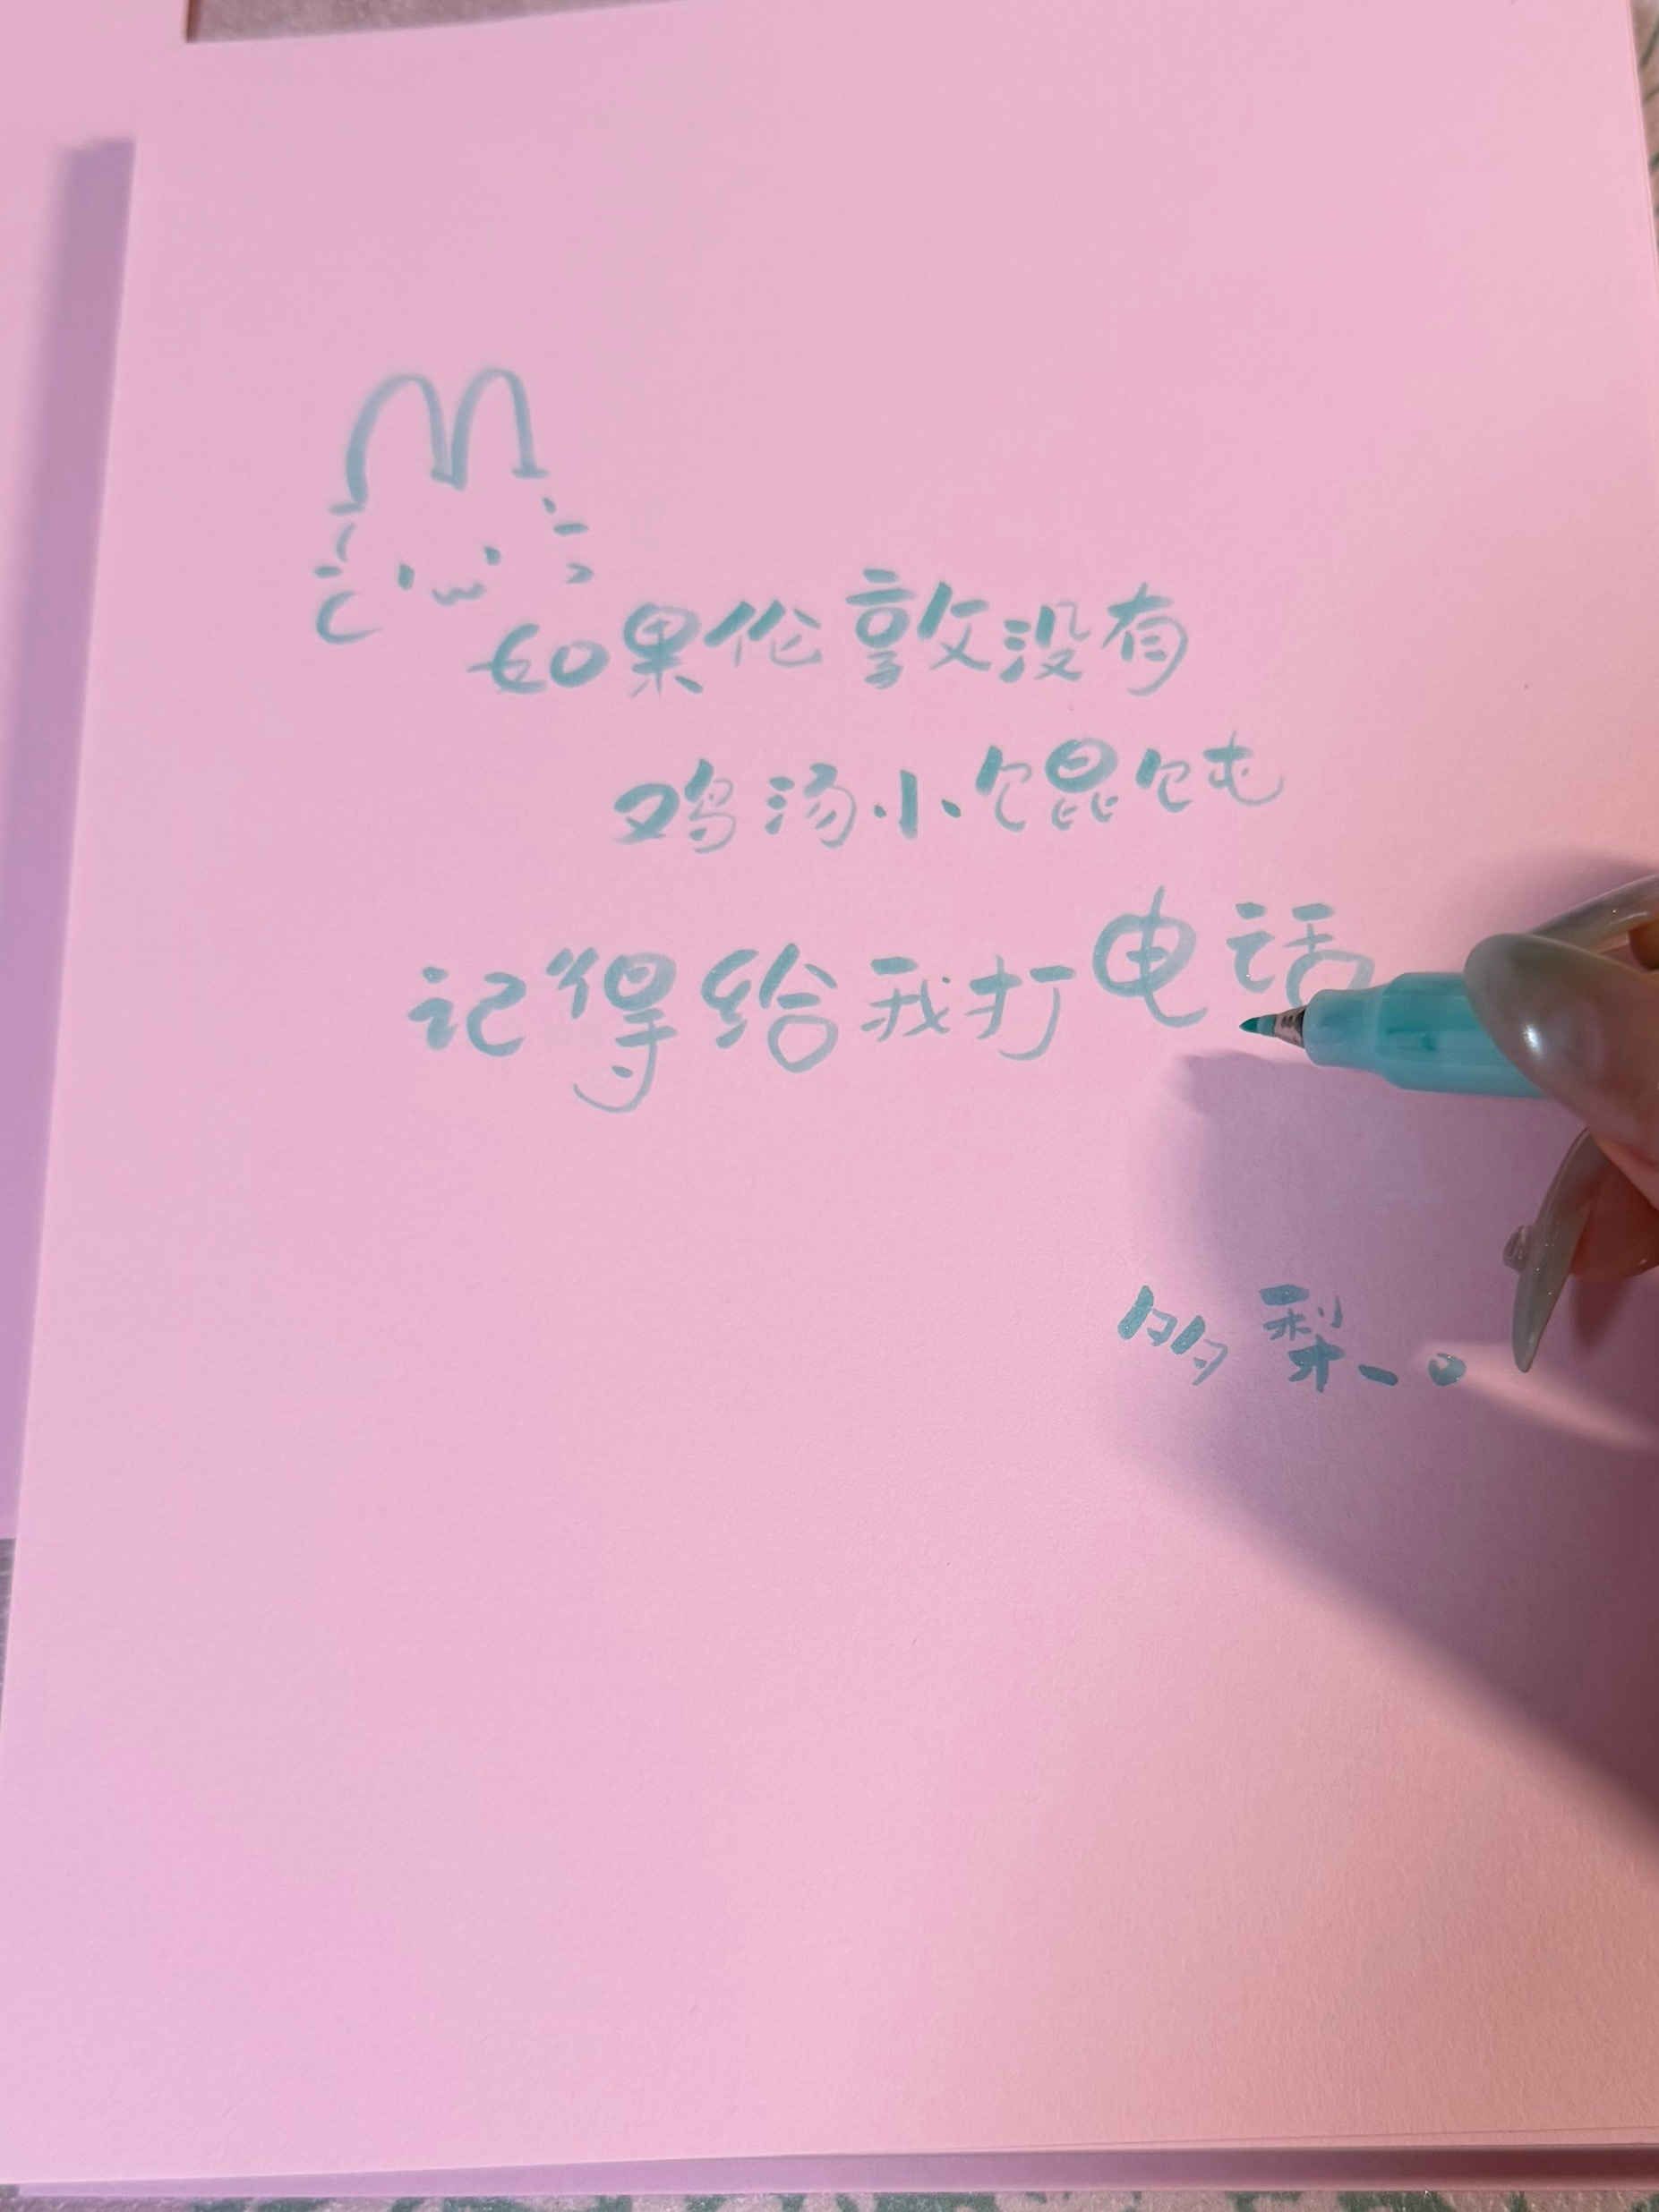 如果伦敦没有
鸡汤小馄饨
记得给我打电话
多梨_。